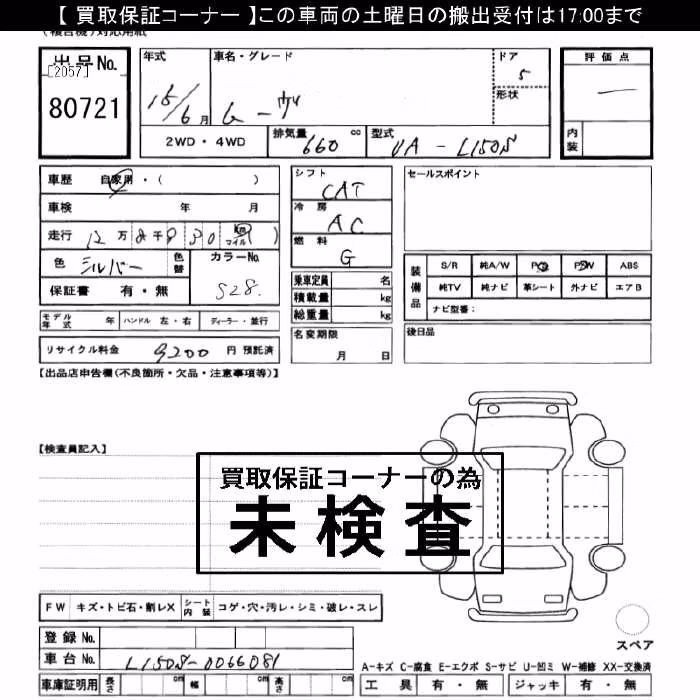 【 買取保証コーナー 】この車両の土曜日の搬出受付は17:00まで
(複合機)対応用紙
出品No.
[2057]
80721
年式
15/6月
車名・グレード
ドア
5
形状
2WD・4WD
排気量
660 cc
型式
UA-L150S
評価点
内装
車歴 自家用・( )
車検 年 月
色 シルバー
色替
カラーNo.
S28
保証書 有・無
モデル年式 年
ハンドル 左・右
ディーラー・並行
リサイクル料金 9200 円 預託済
シフト
CAT
冷房
AC
燃料
G
乗車定員 名
積載量 kg
総重量 kg
名変期限
月 日
セールスポイント
装備品
S/R 純A/W P/S P/W ABS
純TV 純ナビ 革シート 外ナビ エアB
ナビ型番:
後日品
【出品店申告欄(不良箇所・欠品・注意事項等)】
【検査員記入】
買取保証コーナーの為
未検査
FW キズ・トビ石・割レX シート内装 コゲ・穴・汚レ・シミ・破レ・スレ
登録 No.
車台 No. L150S-0066081
車庫証明用 長さ cm 幅 cm 高さ cm
スペア
A-キズ C-腐食 E-エクボ S-サビ U-凹ミ W-補修 XX-交換済
工具 有・無 ジャッキ 有・無